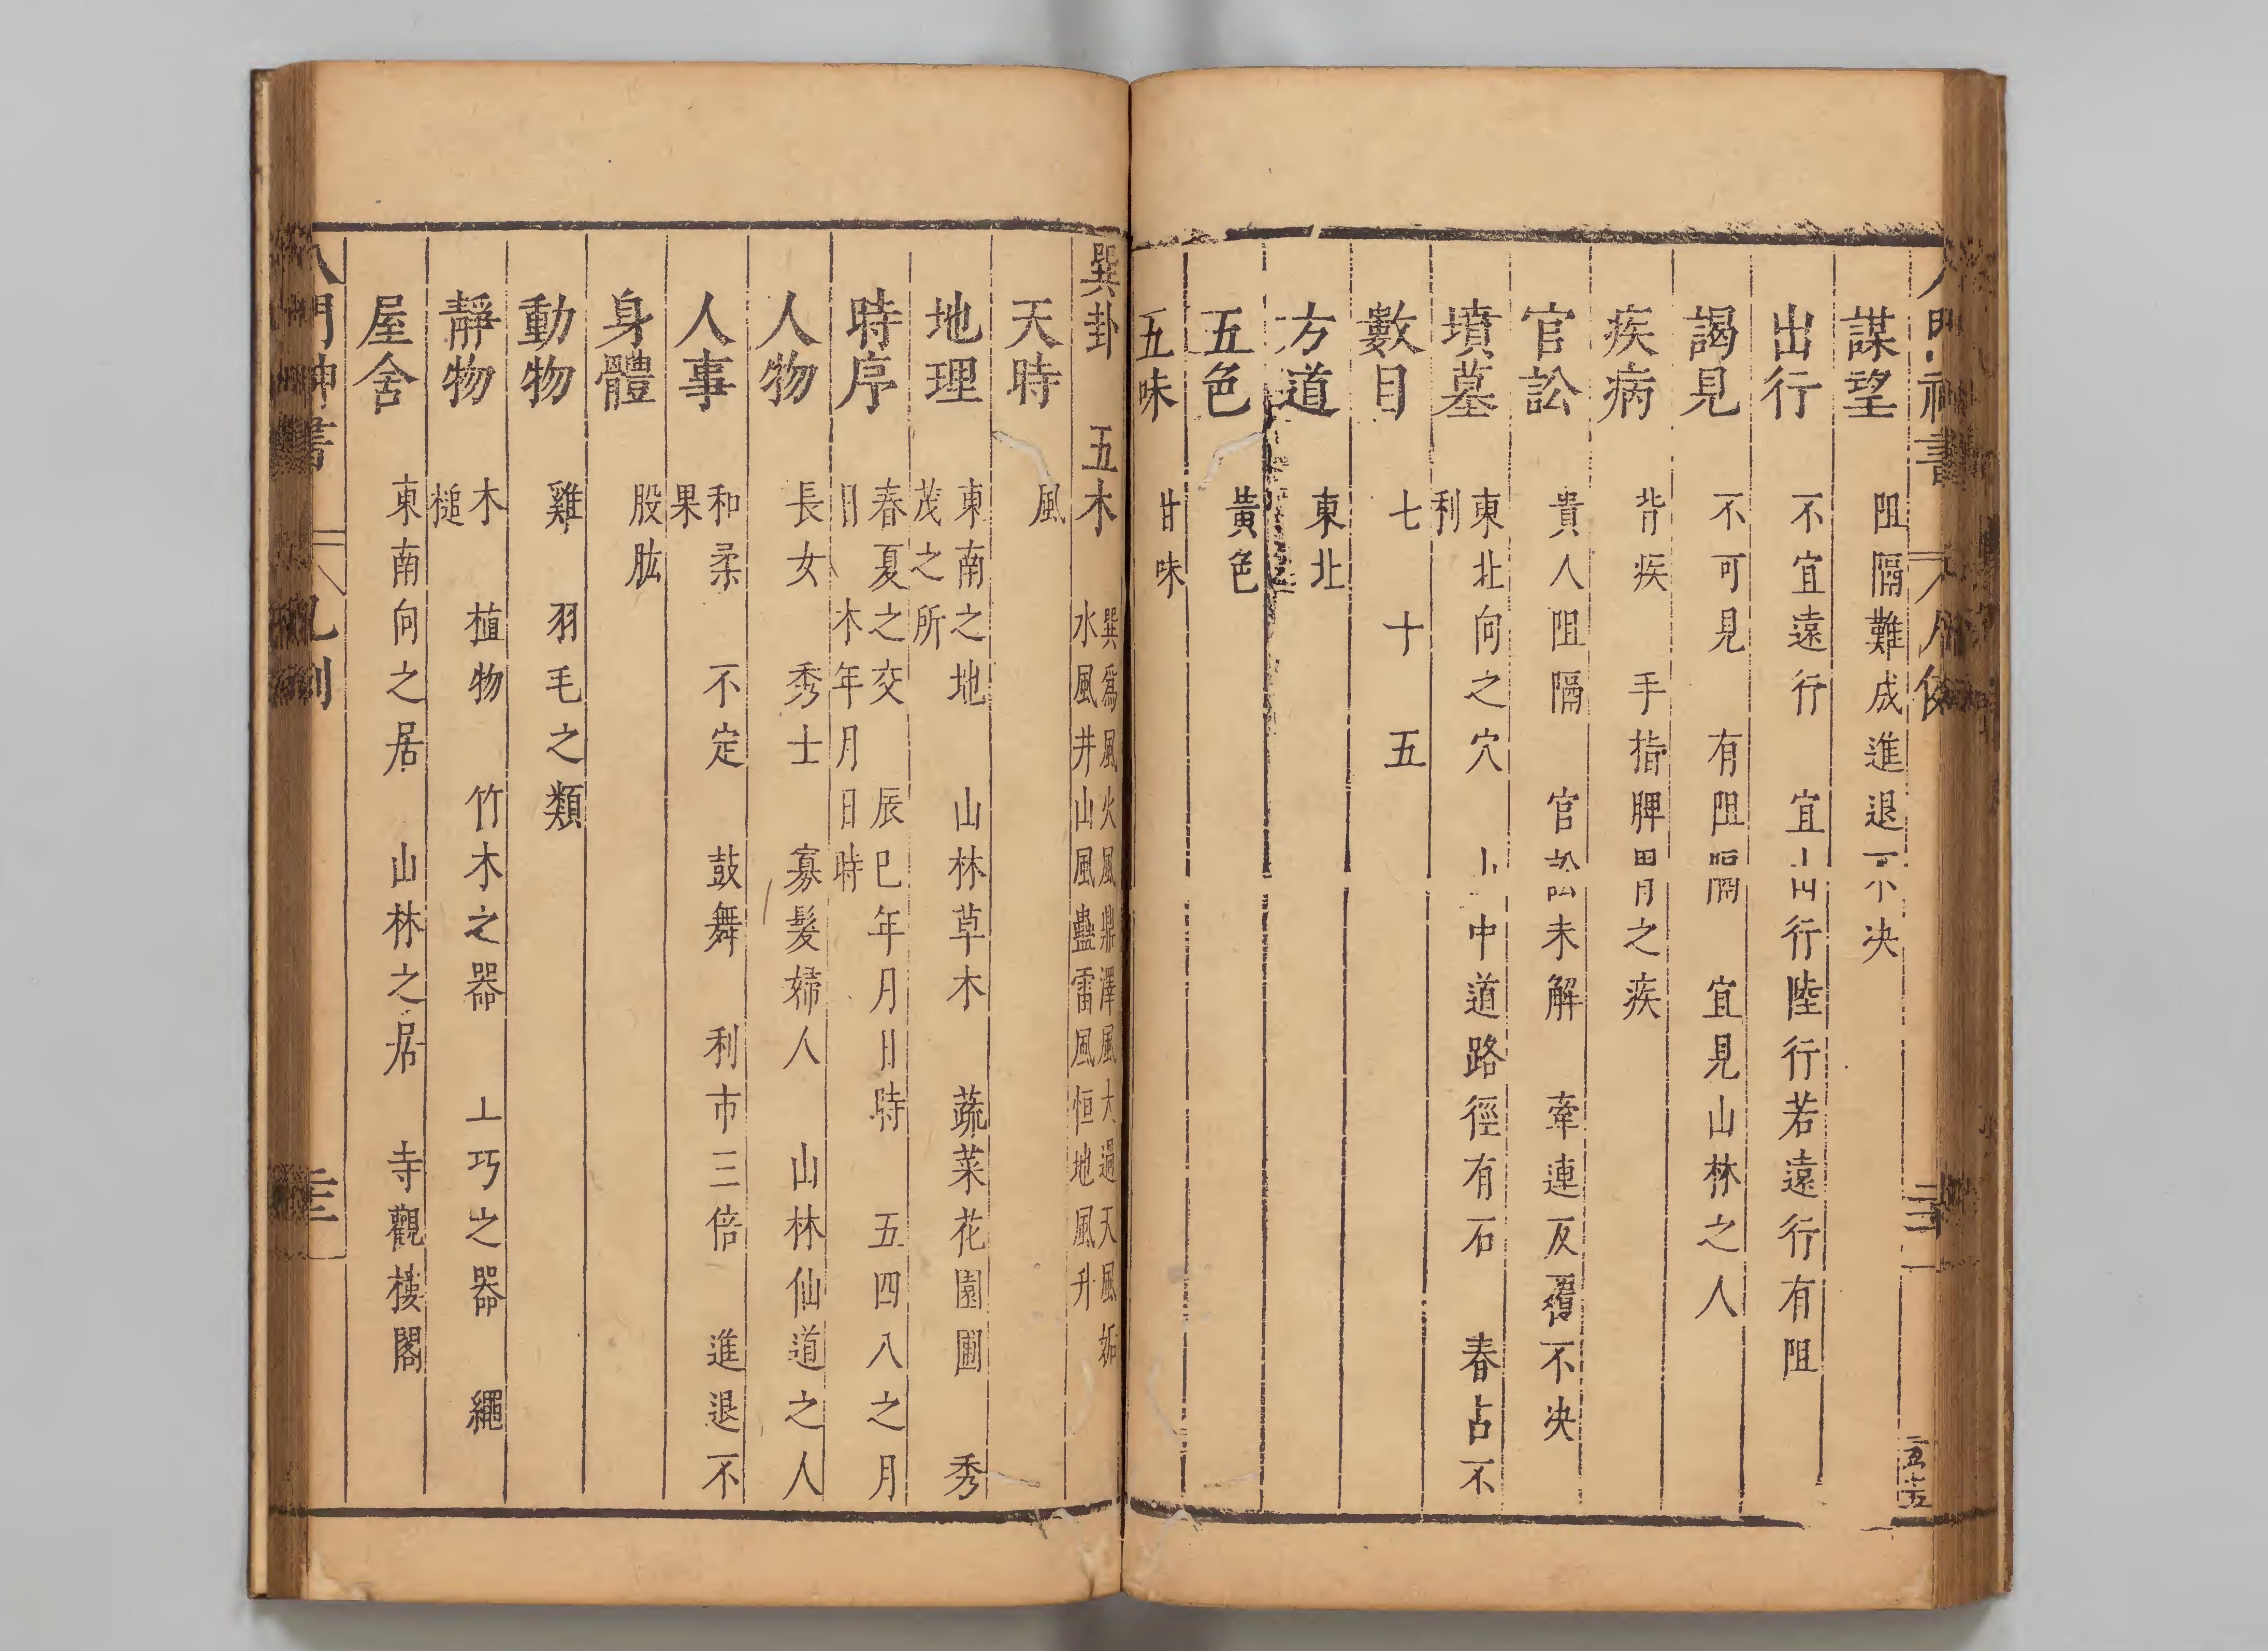 謀望 阻隔難成進退不決
出行 不宜遠行 宜 行陸行若遠行有阻
謁見 不可見 有阻隔 宜見山林之人
疾病 背疾 手指脾胃之疾
官訟 貴人阻隔 官訟未解 牽連反覆不决
墳墓 東北向之穴 中道路徑有石 春占不
利
數目 七 十 五
方道 東北
五色 黃色
五味 甘味
巽卦 五木 巽為風火風鼎澤風大過天風姤
水風井山風蠱雷風恒地風升
天時 風
地理 東南之地 山林草木 蔬菜花園圃 秀
茂之所
時序 春夏之交 辰巳年月日時 五四八之月
日 木年月日時
人物 長女 秀士 寡髮婦人 山林仙道之人
人事 和柔 不定 鼓舞 利市三倍 進退不
果
身體 股肱
動物 雞 羽毛之類
靜物 木 植物 竹木之器 工巧之器 繩
槌
屋舍 東南向之居 山林之居 寺觀樓閣